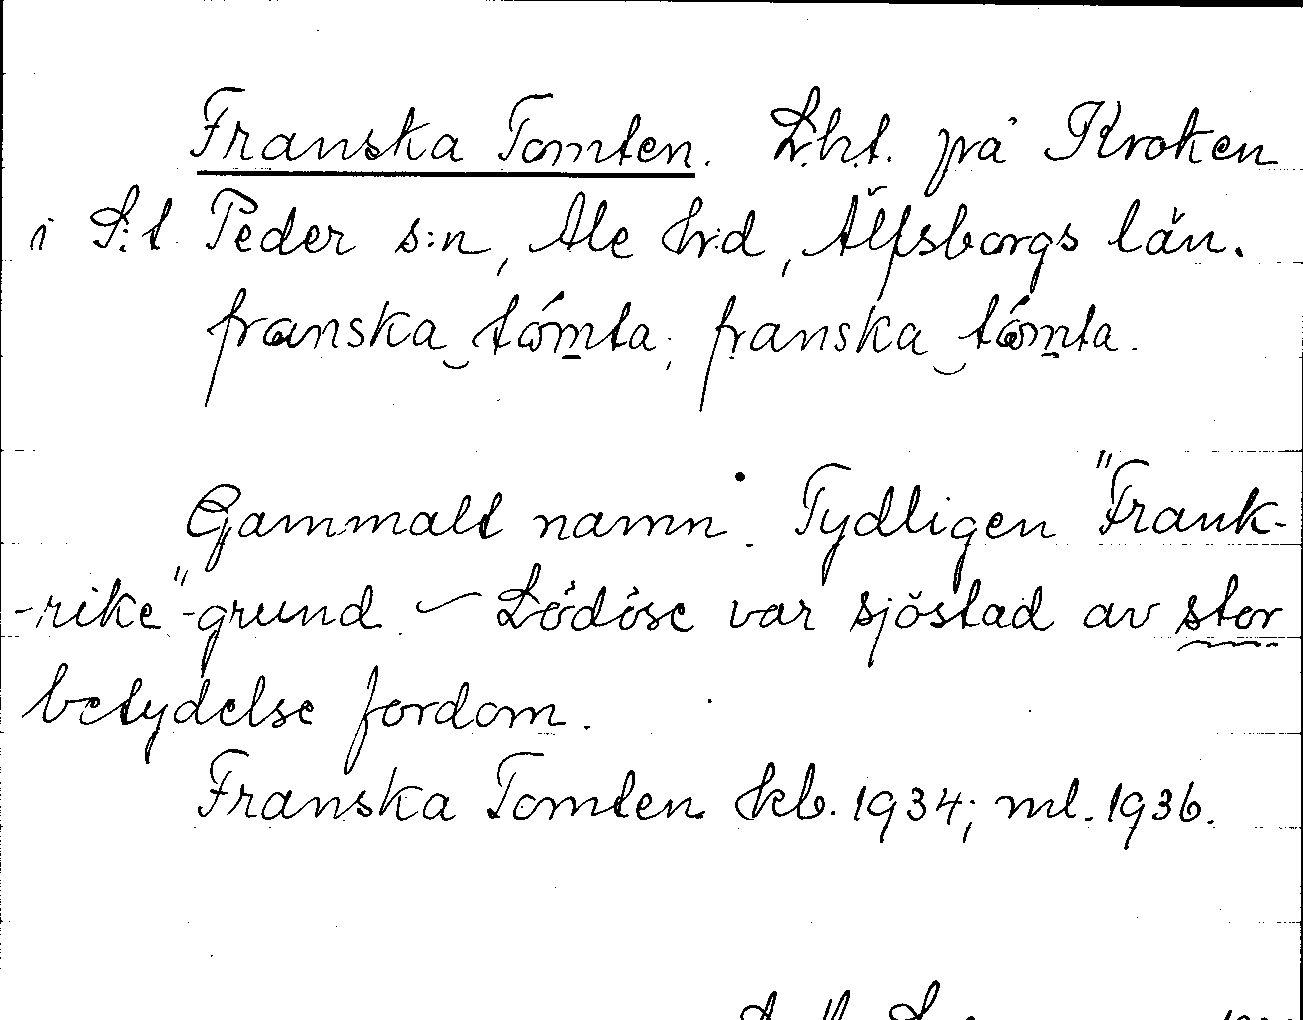 Franska Tomten. Lht. på Kroken
i S:t Peder s:n, Ale h:d, Älfsborgs län.
franska‿tómta; franska‿tómta.
Gammalt namn. Tydligen "Frank-
-rike"-grund – Lödöse var sjöstad av stor
betydelse fordom.
Franska Tomten kb. 1934; ml. 1936.